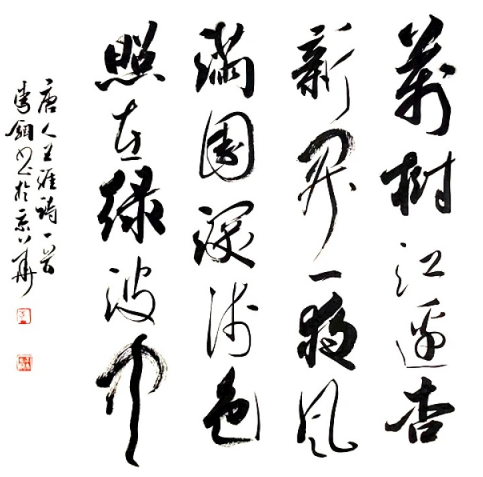 萬樹江邊杏
新開一夜風
滿園深淺色
照在綠波中
唐人王維詩一首
書於京華